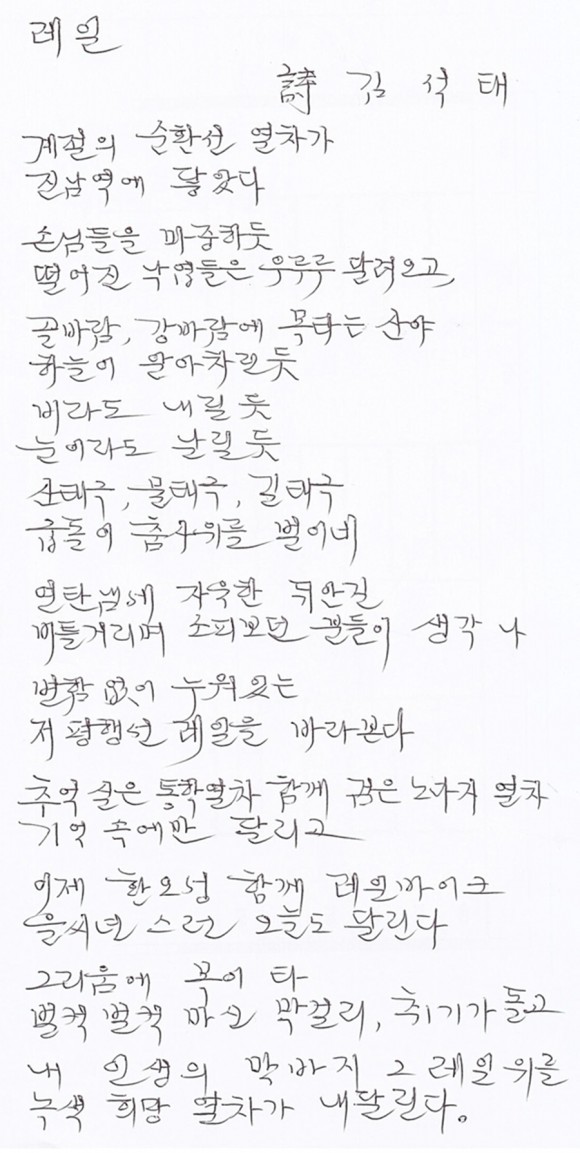 레일
詩 김석태
계절의 순환선 열차가
진남역에 닿았다
손님들을 마중하듯
떨어진 낙엽들은 우루루 달려오고,
골바람, 강바람에 목타는 산야
하늘이 알아차린듯
비라도 내릴 듯
눈이라도 날릴 듯
산태극, 물태극, 길태극
굽돌이 춤사위를 벌이네
연탄냄새 자욱한 뒤안길
비틀거리며 소피보던 분들이 생각 나
변함 없이 누워있는
저 평행선 레일을 바라본다
추억 실은 통학열차 함께 꿈은 노다지 열차
기억 속에만 달리고
이제 환호성 함께 레일바이크
을씨년 스런 오늘도 달린다
그리움에 목이 타
벌컥 벌컥 마신 막걸리, 취기가 돌고
내 인생의 막바지 그 레일 위를
녹색 희망 열차가 내달린다.